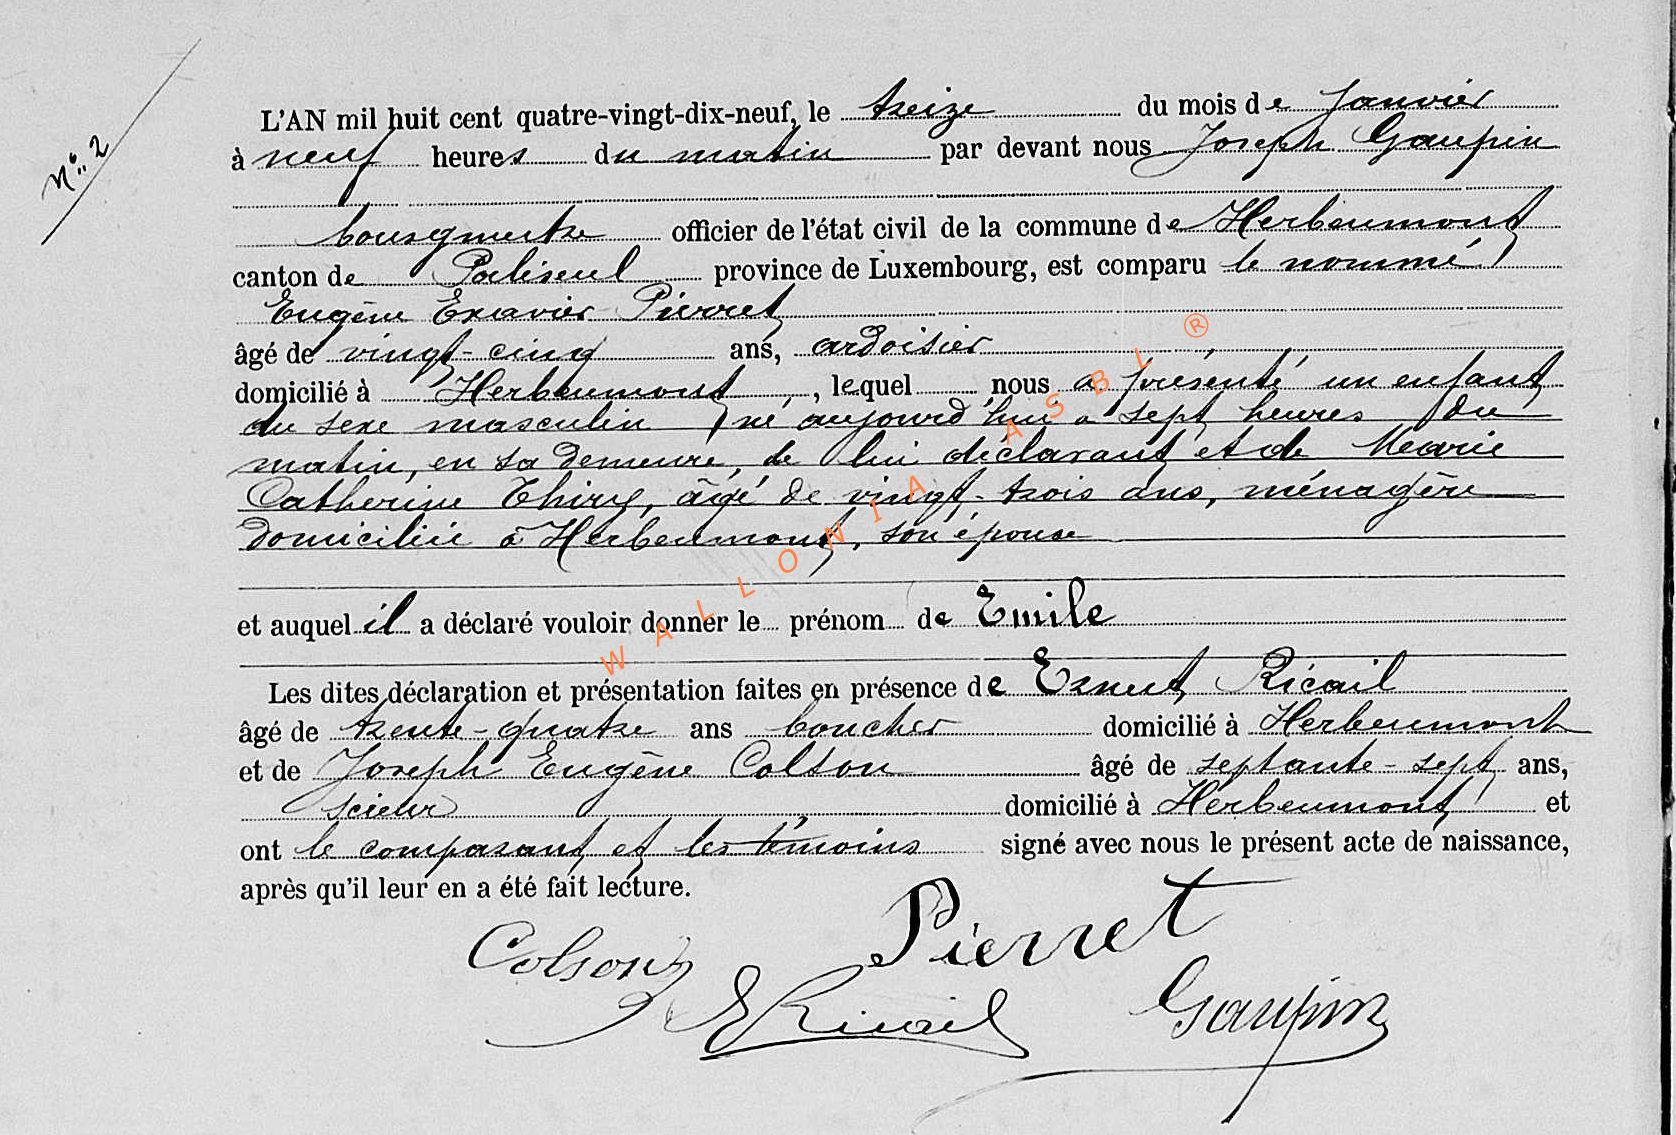 N° 2
L'AN mil huit cent quatre-vingt-dix-neuf, le treize du mois de Janvier
à neuf heures du matin par devant nous Joseph Gaupin
bourgmestre officier de l'état civil de la commune de Herbeumont
canton de Paliseul province de Luxembourg, est comparu le nommé
Eugène Exavier Pierret
âgé de vingt-cinq ans, ardoisier
domicilié à Herbeumont, lequel nous a présenté un enfant
du sexe masculin, né aujourd'hui à sept heures du
matin, en sa demeure, de lui déclarant et de Marie
Catherine Thiry, âgé de vingt-trois ans, ménagère
domiciliée à Herbeumont, son épouse
et auquel il a déclaré vouloir donner le prénom de Emile
Les dites déclaration et présentation faites en présence de Ernest Ricail
âgé de trente-quatre ans boucher domicilié à Herbeumont
et de Joseph Eugène Colson âgé de septante-sept ans,
scieur domicilié à Herbeumont et
ont le comparant et les témoins signé avec nous le présent acte de naissance,
après qu'il leur en a été fait lecture.
Pierret
Colson
E Ricail
Gaupin
WALLONIA ASBL ®